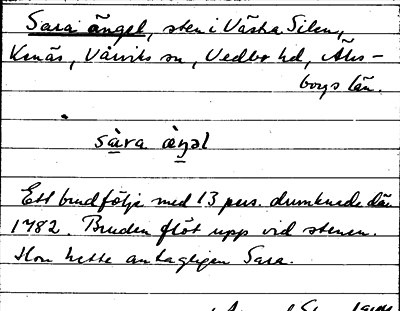 Sara ängel, sten i Västra Silen,
Kenäs, Vårviks sn, Vedbo hd, Älvs-
borgs län.
sàra àŋəl
Ett brudfölje med 13 pers. drunknade där
1782. Bruden flöt upp vid stenen.
Hon hette antagligen Sara.